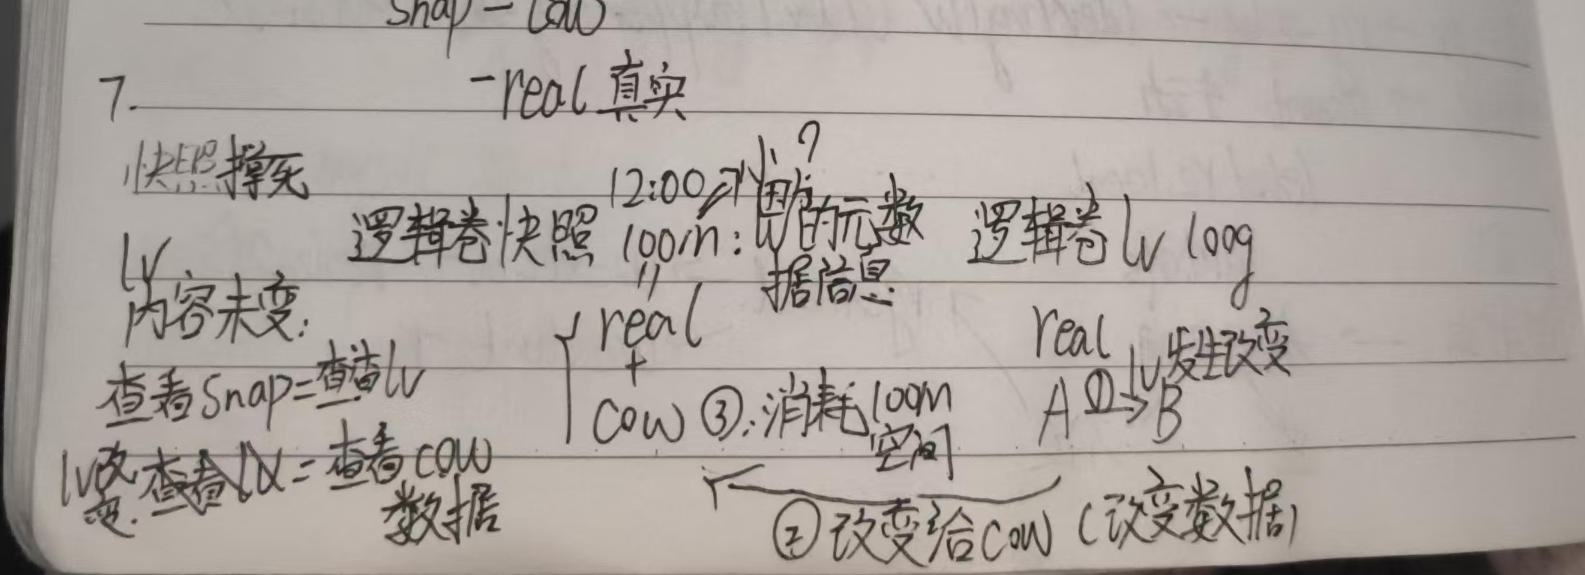 Snap-cow
-real 真实
7.
快照撑死
12:00
?
逻辑卷快照 100m: 的元数
据信息
逻辑卷 lv 100g
lv
内容未变:
查看Snap=查看lv
lv改变.查看 = 查看cow
数据
=
real
+
cow ③:消耗100m
空间
real
lv发生改变
A①→B
②改变给cow (改变数据)